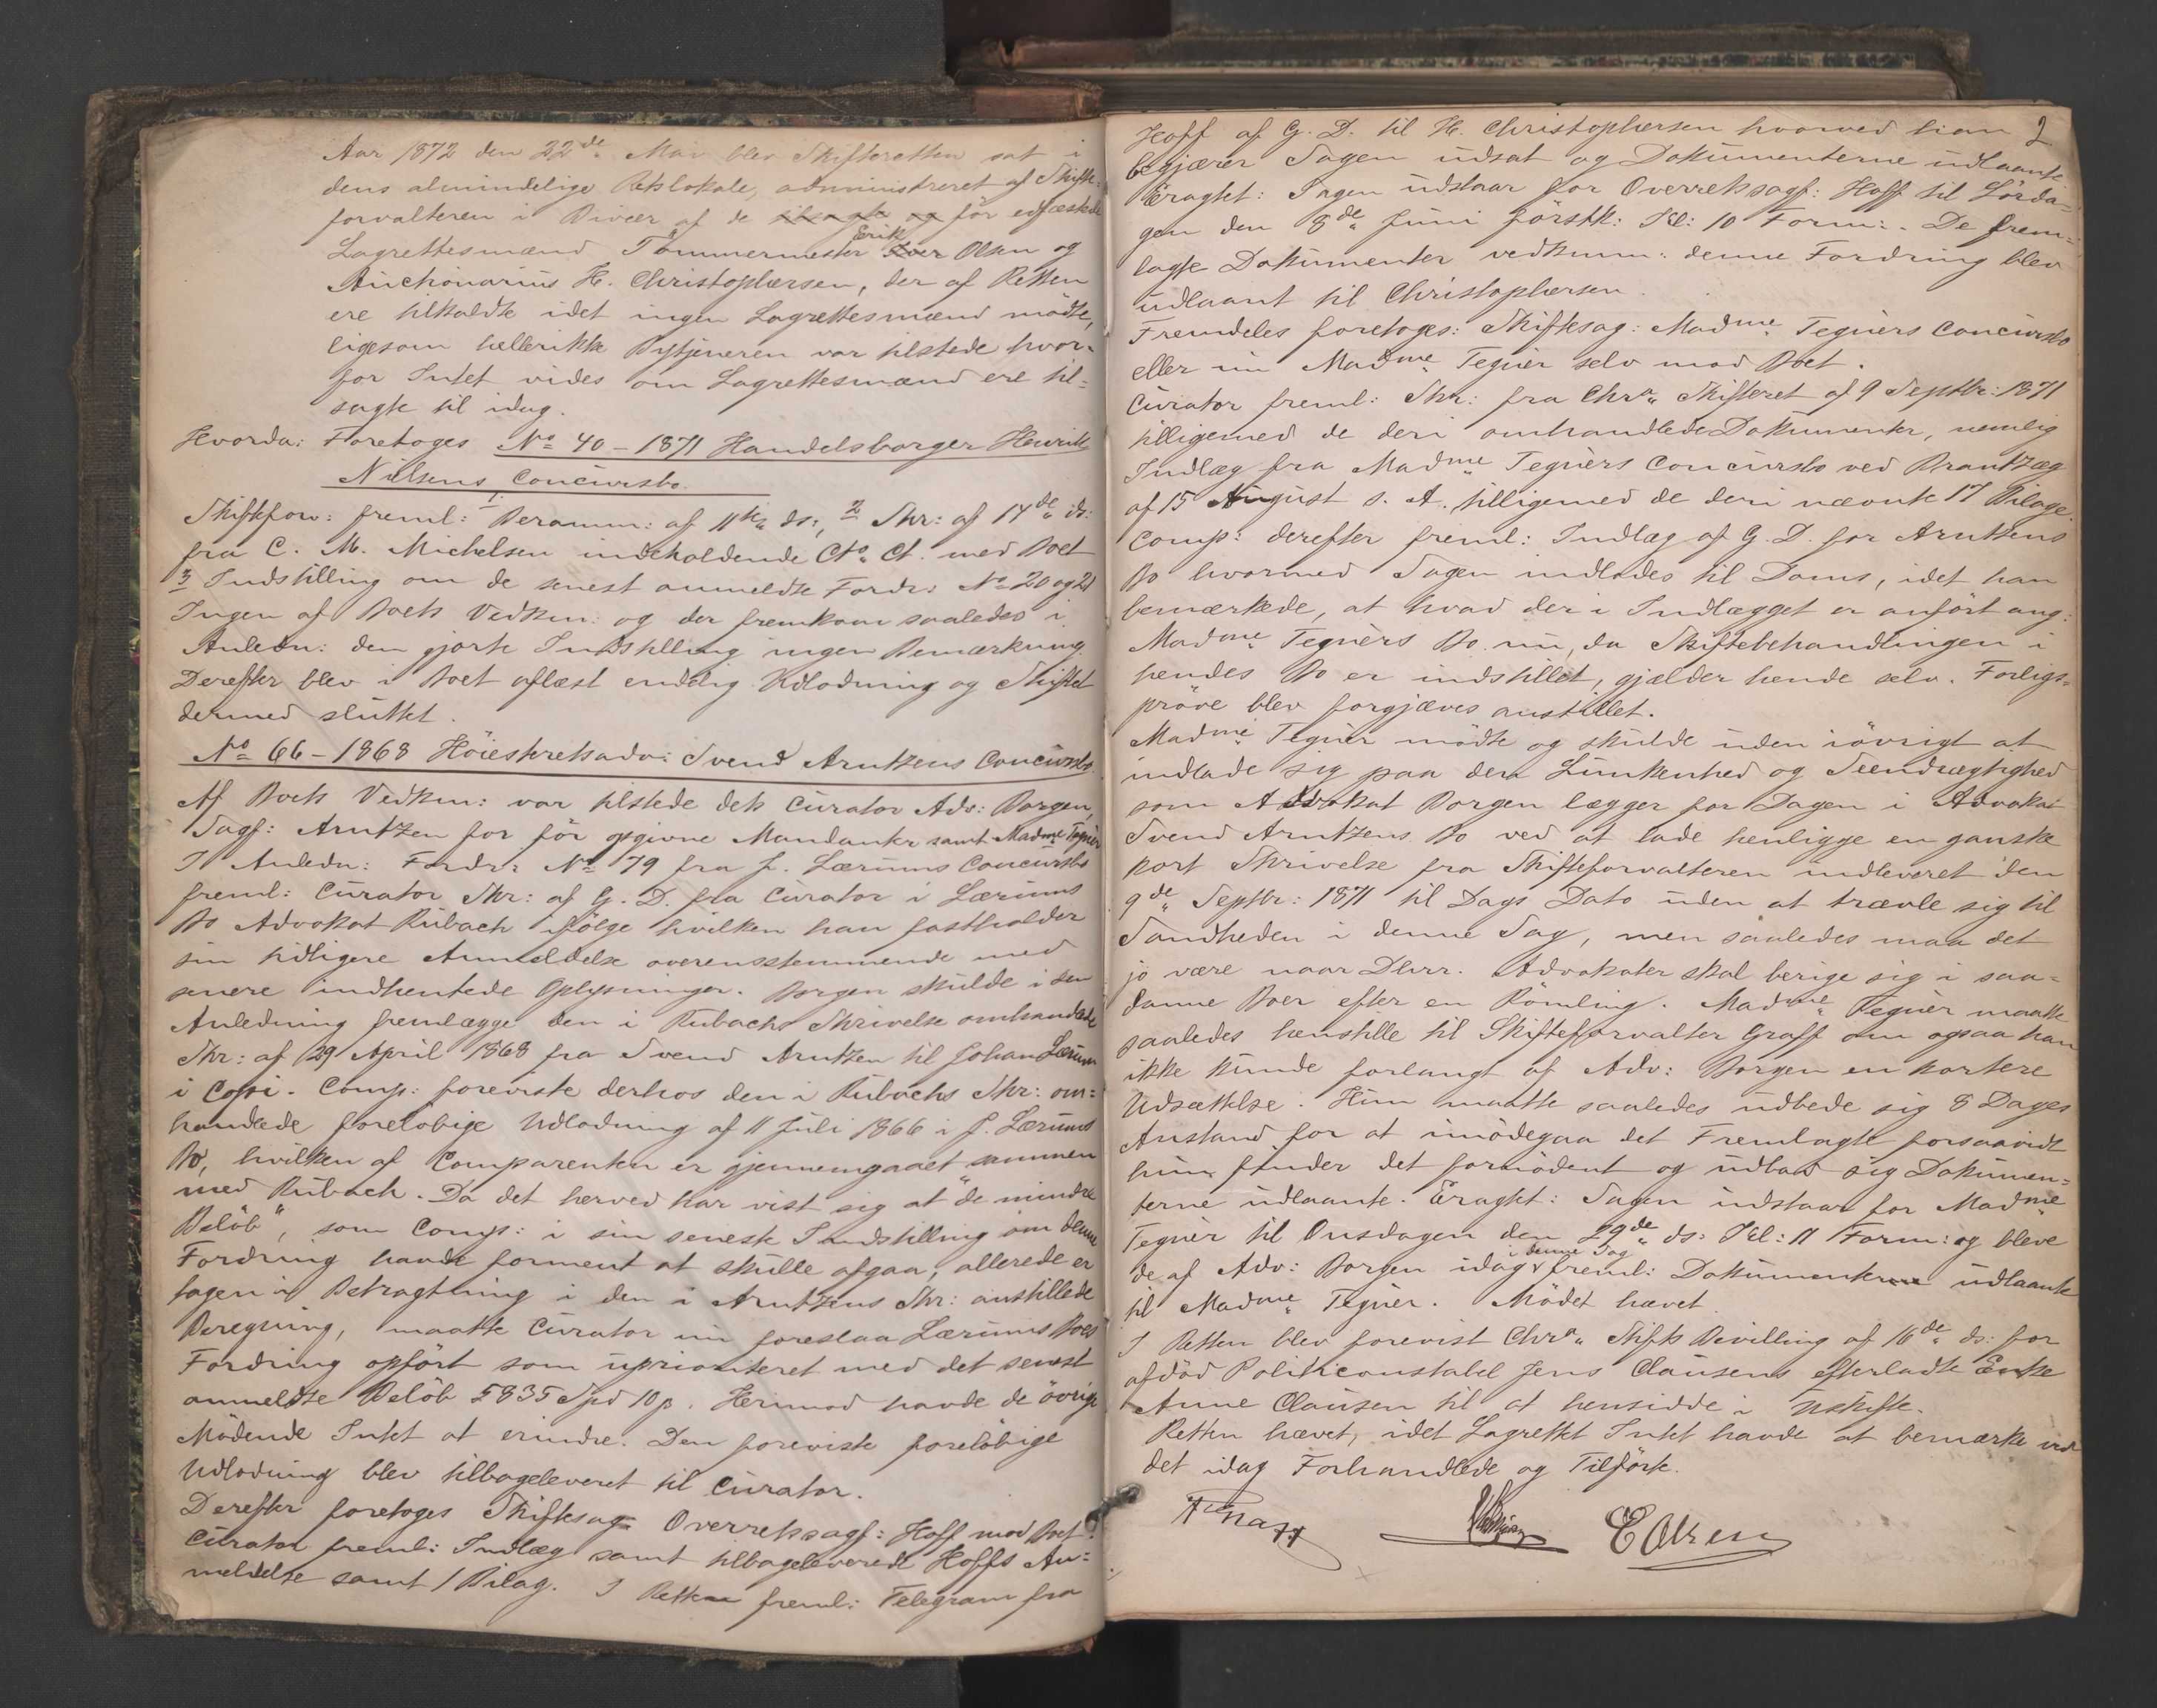 Aar 1872 den 22de Mai blev Skifteretten sat i
dens almindelige Retslokale, administreret af Skifte-
forvalteren i Divær af de tilsagte og før edfæstede
Erik
Lagrettesmænd Tømmermester Iver Olsen og
Auctionarius H. Christophersen, der af Retten
ere tilkaldte idet ingen Lagrettesmænd mødte,
ligesom hellerikke Bytjeneren var tilstede hvor-
for Intet vides om Lagrettesmænd ere til-
sagte til idag.
Hvorda: Foretoges No 40 - 1871 Handelsborger Henrik
Nilsens Concursbo.
Skiftefov: freml: 1. Beramm: af 11te ds:, 2 Skr: af 14de ds:
fra C. M. Michelsen indeholdende Cto Ct. med Boet
3 Indstilling om de senest anmeldte Fordr: No 20 og 21
Ingen af Boets Vedkm: og der fremkom saaledes i
Anledn: den gjorte Indstilling ingen Bemærkning.
Derefter blev i Boet oflæst endelig Udlodning og Skiftet
dermed sluttet.
No 66 - 1868 Høiesteretsadv: Svend Arntzens Concursbo.
Af Boets Vedkm: var tilstede dets Curator Adv: Borgen,
Sagf: Arntzen for før opgivne Mandanter samt Madme Tegnér
I Anledn: Fordr: No 79 fra J. Lærums Concursbo
freml: Curator Skr: af G. D. fra Curator i Lærums
Bo Advokat Rubach ifølge hvilken han fastholder
sin tidligere Anmeldelse overensstemmende med
senere indhentede Oplysninger. Borgen skulde i den
Anledning fremlægge den i Rubachs Skrivelse omhandlede
Skr: af 29 April 1868 fra Svend Arntzen til Johan Lærum
i Copi. Comp: foreviste derhos den i Rubachs Skr: om-
handlede foreløbige Udlodning af 11 Juli 1866 i J. Lærums
Bo, hvilken af Comparenten er gjennemgaaet sammen
med Rubach. Da det herved har vist sig at "de mindre
Beløb", som Comp: i sin seneste Indstilling om denne
Fordring havde forment at skulle afgaa, allerede er
tagen i Betragtning i den i Arntzens Skr: anstillede
Beregning, maatte Curator nu foreslaa Lærums Boes
Fordring opført som uprioriteret med det senest
anmeldte Beløb 5835 Spd 10 ß. Herimod havde de øvrige
Mødende Intet at erindre. Den foreviste foreløbige
Udlodning blev tilbageleveret til Curator.
Derefter foretoges Skiftesag Overretssagf: Hoff mod Boet.
Curator freml: Indlæg samt tilbageleverede Hoffs An-
meldelse samt 1 Bilag. I Retten freml: Telegram fra
2
Hoff af G. D. til H. Christophersen hvorved han
begjærer Sagen udsat og Dokumenterne udlaante
Eragtet: Sagen udstaar for Overretssagf: Hoff til Lørda-
gen den 8de Juni førstk: Kl: 10 Form:. De frem-
lagte Dokumenter vedkmm: denne Fordring blev
udlaant til Christophersen.
Fremdeles foretoges: Skiftesag: Madme Tegnèrs Concursbo
eller nu Madme Tegnér selv mod Boet.
Curator freml: Skr: fra Chra Skifteret af 9 Septbr: 1871
tilligemed de deri omhandlede Dokumenter, nemlig
Indlæg fra Madme Tegnèrs Concursbo ved Brantzæg
af 15 August s. A. tilligemed de deri nævnte 17 Bilage.
Comp: derefter freml: Indlæg af G. D. for Arntzens
Bo hvormed Sagen indlodes til Doms, idet han
bemærkede, at hvad der i Indlægget er anført ang:
Madme Tegnèrs Bo nu, da Skiftebehandlingen i
hendes Bo er indstillet, gjælder hende selv. Forligs-
prøve blev forgjæves anstillet.
Madme Tegnér mødte og skulde uden iøvrigt at
indlade sig paa den Lunkenhed og Seendrægtighed
som Advokat Borgen lægger for Dagen i Advokat
Svend Arntzens Bo ved at lade henligge en ganske
kort Skrivelse fra Skifteforvalteren indleveret den
9de Septbr: 1871 til Dags Dato uden at trævle sig til
Sandheden i denne Sag, men saaledes maa det
jo være naar Dhrr. Advokater skal berige sig i saa-
danne Boer efter en Rømling. Madme Tegnèr maatte
saaledes henstille til Skifteforvalter Graff om ogsaa han
ikke kunde forlangt af Adv: Borgen en kortere
Udsættelse. Hun maatte saaledes udbede sig 8 Dages
Anstand for at imødegaa det Fremlagte forsaavidt
hun finder det fornødent og udbad sig Dokumen-
terne udlaante. Eragtet: Sagen udstaar for Madme
Tegnér til Onsdagen den 29de ds: Kl: 11 Form: og bleve
i denne Sag
de af Adv: Borgen idag freml: Dokumenter udlaante
til Madme Tegnér. Mødet hævet.
I Retten blev forevist Chra Stifts Bevilling af 16de ds: for
afdød Politiconstabel Jens Clausens efterladte Enke
Anne Clausen til at hensidde i Uskifte.
Retten hævet, idet Lagrettet Intet havde at bemærke ved
det idag Forhandlede og Tilførte.
Graff
E Olsen